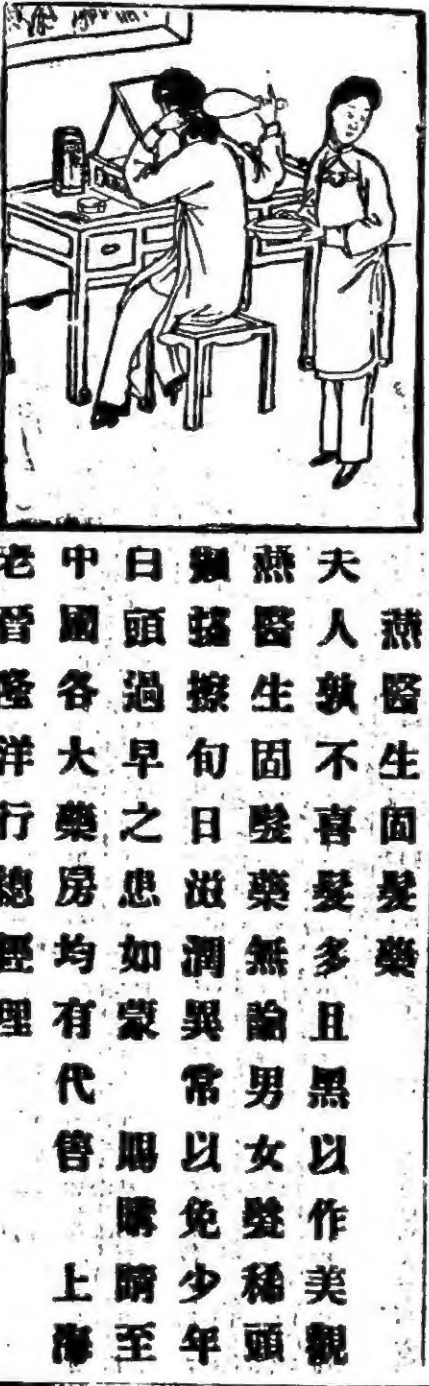 燕醫生固髮藥
夫人孰不喜髮多且黑以作美觀
燕醫生固髮藥無論男女髮稀頭
擦旬日滋潤異常以免少年
白頭過早之患如蒙　賜購請至
中國各大藥房均有代管　上海
老晉隆洋行總經理